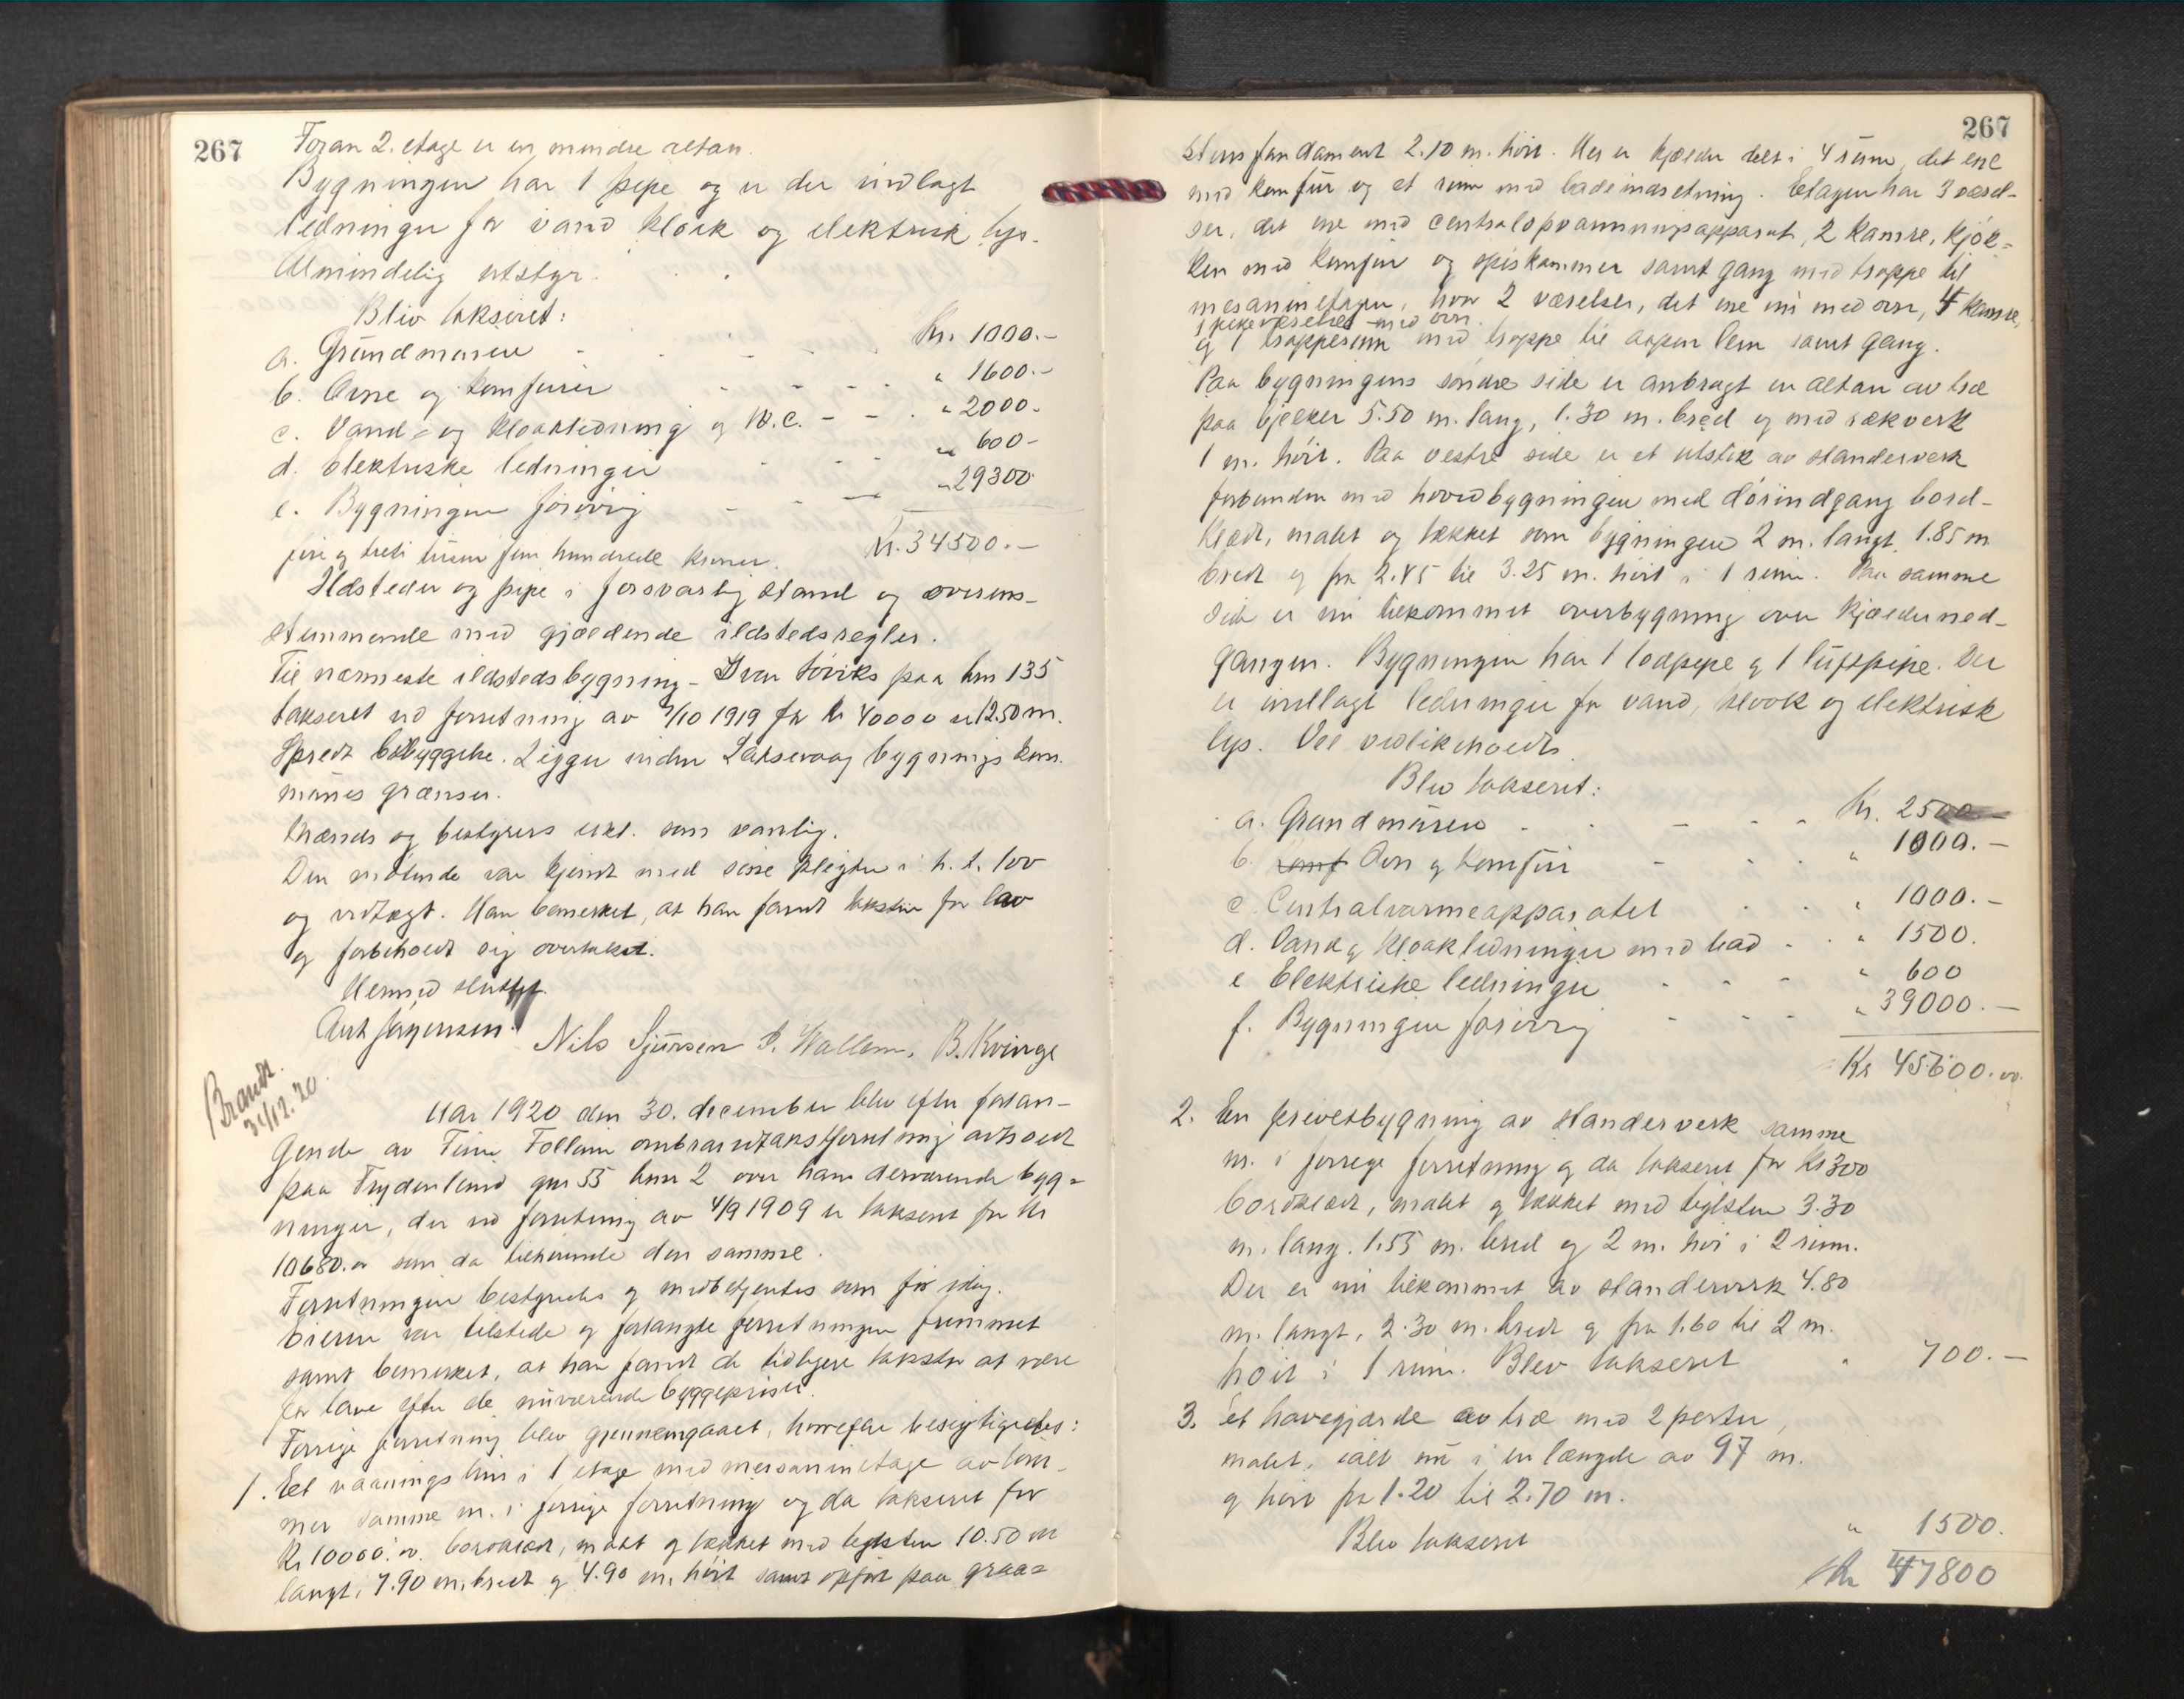 267
Foran 2. etage er en mindre altan.
Bygningen har 1 pipe og er der indlagt
ledninger for vand kloak og elektrisk lys.
Almindelig utstyr.
Blev takseret:
a. Grundmuren - - - - Kr. 1000.-
b. Ovne og komfurer - - - - " 1600.-
c. Vand- og kloakledning og W.C. - - . " 2000.
d. elektriske ledninger - - - " 600-
e. Bygningen forøvrig - - - " 29300
fire og treti tusen fem hundrede kroner. Kr. 34500.-
Ildsteder og pipe i forsvarlig stand og overens-
stemmende med gjældende ildstedsregler.
Til nærmeste ildstedsbygning - Ivar paa bnr 135
takseret ved forretning av 7/10 1919 for kr 40000 er 12.50 m.
Spredt bebyggelse. Ligger inden Laksevaag bygningskom-
munes grænser.
Brænds og bestyrers erkl. som vanlig.
Den mötende var kjendt med sine pligter i h. t. lov
og vedtægt. Han bemerket, at han fandt taksten for lav
og forbeholdt sig overtakst.
Hermed sluttet.
Ant Jørgensen. Nils Sjursen P. Wallem. B. Kvinge
Brandt.
31/12. 20.
Aar 1920 den 30. december blev efter forlan-
gende av Follem ombrandtakstforretning avholdt
paa Frydenlund gnr 55 bnr 2 over hans derværende byg-
ninger, der ved forretning av 4/9 1909 er takseret for kr
10680.00 som da tilhørende den samme.
Forretningen bestyredes og medbetjentes som før idag.
Eieren var tilstede og forlangte forretningen fremmet
samt bemerket, at han fandt de tidligere takster at være
for lave efter de nuværende byggepriser.
Forrige forretning blev gjennemgaaet, hvorefter besigtigedes:
1. Et vaaningshus i 1 etage med mesaninetage av töm-
mer samme nr. i forrige forretning og da takseret for
Kr 10000.00. bordklædt, malt og tækket med teglsten 10.50 m
langt, 7.90 m. bredt og 4.90 m. höit samt opfört paa graa-
267
stens fundament 2.10 m. höit. Her er kjælder delt i 4 rum, det ene
med komfur og et rum med badeindretning. Etagen har 3 værel-
ser, det ene med centralopvarmningsapparat, 2 kamre, kjök-
ken med komfur og spiskammer samt gang med trappe til
mesaninetagen, hvor 2 værelser, det ene nu med ovn, 4 kamre,
1 pikeværelset med ovn
og 1 trapperum med trappe til aapen lem samt gang.
Paa bygningens söndre side er anbragt en altan av træ
paa bjelker 5.50 m. lang, 1.30 m. bred og med rækverk
1 m. höit. Paa vestre side er et utstik av standerverk
forbunden med hovedbygningen med dörindgang bord-
klædt, malet og tækket som bygningen 2 m. langt, 1.85 m
bredt og fra 2.45 til 3.25 m. höit i 1 rum. Paa samme
side er nu tilkommet overbygning over kjældernед-
gangen. Bygningen har 1 lodpipe og 1 luftpipe. Der
er indlagt ledninger for vand, kloak og elektrisk
lys. Vel vedlikeholdt.
Blev takseret:
a. Grundmuren - - - - Kr. 2500
b. Ovn og komfur - - - " 1000.-
c Centralvarmeapparatet - - " 1000.-
d. Vand og kloakledninger med bad - - " 1500.
e Elektriske ledninger - - - " 600
f. Bygningen forøvrig - - - " 39000.-
Kr 45600.00.
2. En privetbygning av standerverk samme
nr. i forrige forretning og da takseret for Kr 300
bordklædt, malet og tækket med teglsten 3.30
m. lang. 1.55 m. bred og 2 m. höi i 2 rum.
Der er nu tilkommet av standerverk 4.80
m. langt, 2.30 m. bredt og fra 1.60 til 2 m.
höit i 1 rum. Blev takseret " 700.-
3. et havegjærde av træ med 2 porter,
malet, ialt nu i en længde av 97 m.
og höit fra 1.20 til 2.70 m.
Blev takseret " 1500.
Kr 47800